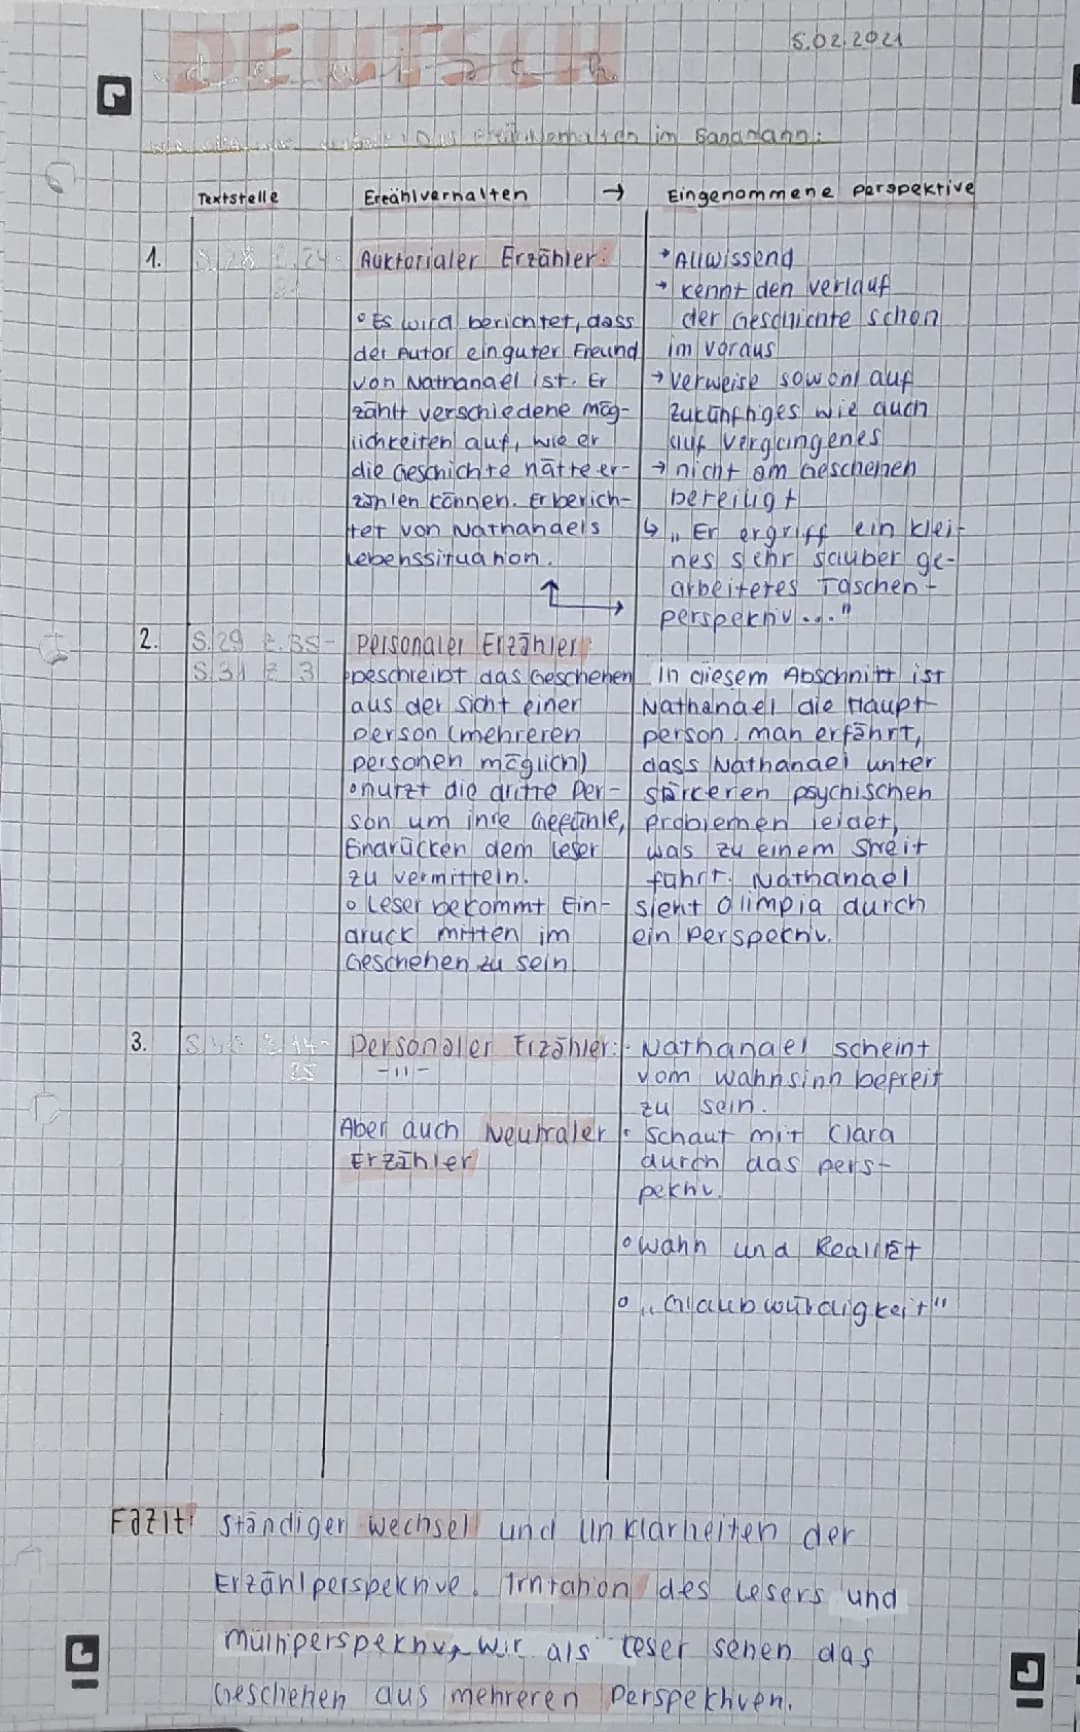 DEUTSCH
5.02.2021
Das Erzählverhalten im Sandmann:
Textstelle
Erzählverhalten → Eingenommene perspektive
1.
Auktorialer Erzähler:
° Es wird berichtet, dass
der Autor ein guter Freund
von Nathanael ist. Er
zählt verschiedene mög-
lichkeiten auf, wie er
die Geschichte hätte er-
zählen können. Er berich-
tet von Nathanaels
Lebenssituation.
→ Allwissend
→ kennt den verlauf
der Geschichte schon
im voraus
→ verweise sowohl auf
zukünftiges wie auch
auf vergangenes
→ nicht am Geschehen
bereiligt
↳ „Er ergriff ein klei-
nes sehr sauber ge-
arbeiteres Taschen-
perspektiv..."
2.
S.29 z.35-
S.31 z 3
personaler Erzähler:
beschreibt das Geschehen
aus der sicht einer
person (mehreren
personen möglich)
° nutzt die dritte Per-
son um ihre Gefühle,
Eindrücken dem leser
zu vermitteln.
° Leser bekommt Ein-
druck mitten im
Geschehen zu sein
In diesem Abschnitt ist
Nathanael die Haupt-
person. man erfährt,
dass Nathanael unter
stärkeren psychischen
problemen leidet,
was zu einem streit
führt. Nathanael
sieht Olimpia durch
ein perspektiv.
3.
Personaler Erzähler:
-11-
Aber auch Neutraler
Erzähler
· Nathanael scheint
vom wahnsinn befreit
zu sein.
· schaut mit Clara
durch das pers-
pektiv.
° wahn und Realität
° „Glaubwürdigkeit"
Fazit: ständiger wechsel und unklarheiten der
Erzählperspektive. Irritation des Lesers und
multiperspektiv, wir als leser sehen das
Geschehen aus mehreren perspektiven.